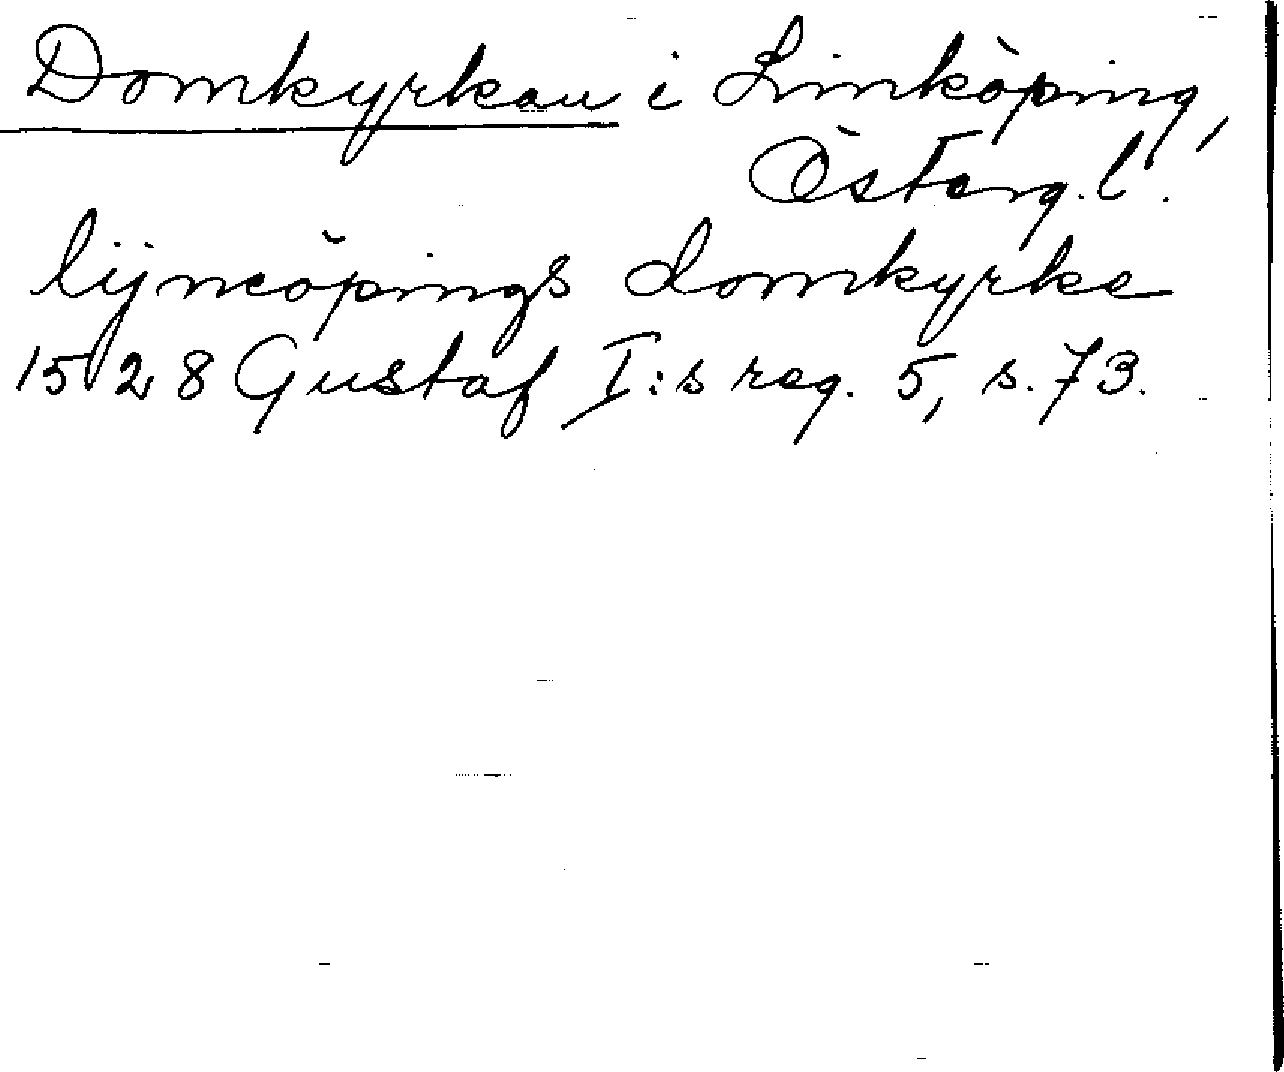 Domkyrkan i Linköping,
Österg. l.
lijncöpings domkyrke
1528 Gustaf I:s reg. 5, s. 73.